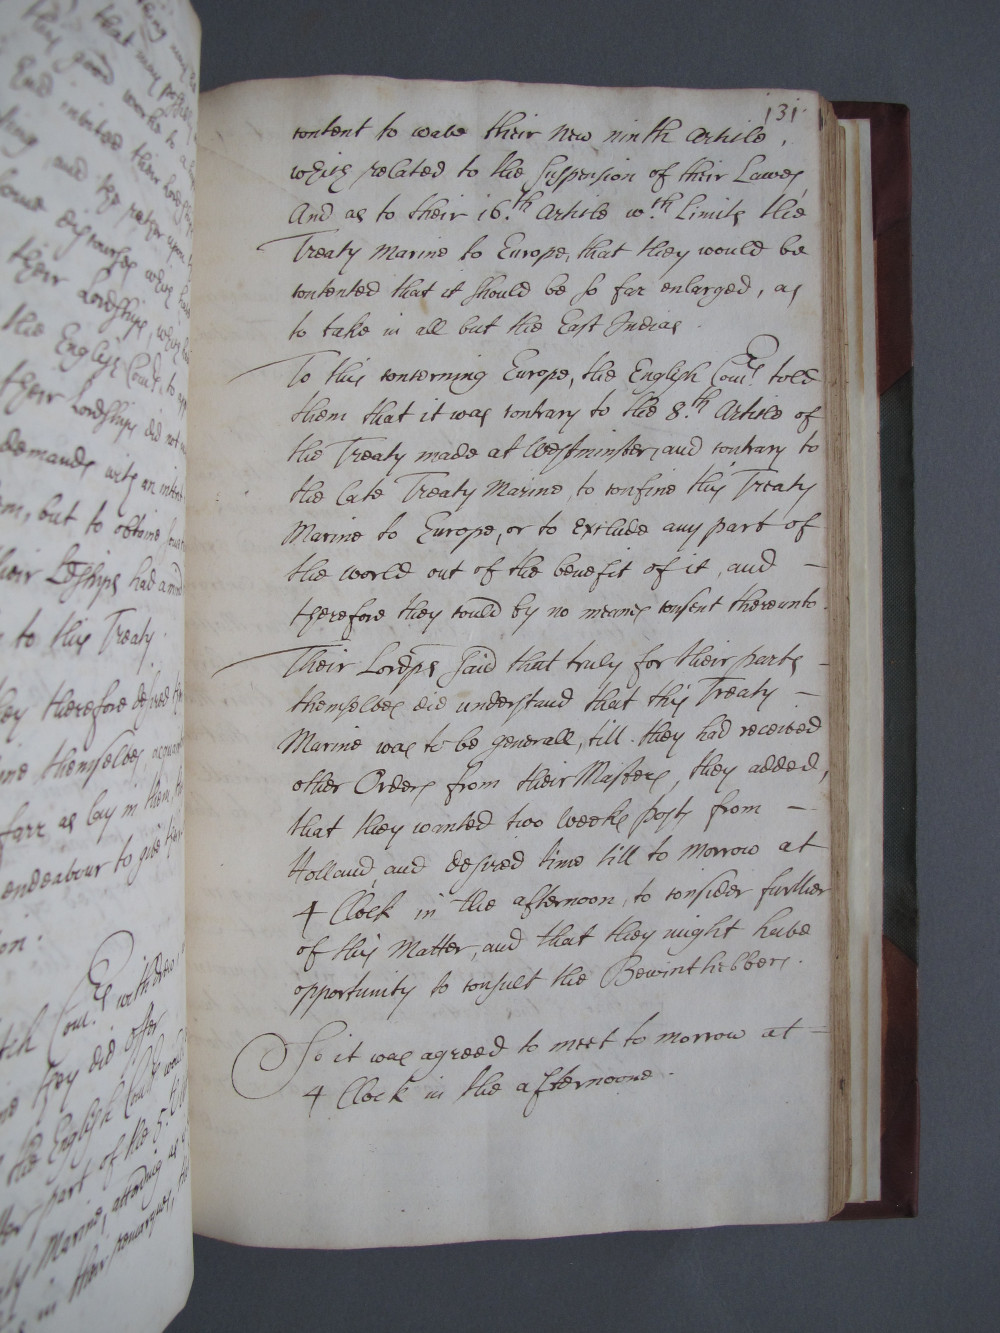 131
content to wave their new ninth Article,
which related to the Suspension of their Lawes,
And as to their 16.th Article w.ch Limits the
Treaty Marine to Europe, that they would be
contented that it should be so far enlarged, as
to take in all but the East Indias.
To this concerning Europe, the English Com.rs told
them that it was contrary to the 8.th Article of
the Treaty made at Westminster, and contrary to
the late Treaty Marine, to confine this Treaty
Marine to Europe, or to exclude any part of
the world out of the benefit of it, and –
therefore they could by no means consent thereunto.
Their Lordps said that truly for their parts –
themselves did understand that this Treaty –
Marine was to be generall, till they had received
other Orders from their Masters, they added,
that they wanted two weeks posts from –
Holland, and desired time till to morrow at
4 Clock in the afternoon, to consider further
of this Matter, and that they might have
opportunity to consult the Bewinthebbers.
So it was agreed to meet to morrow at –
4 Clock in the afternoone.
that may
good works to a
their
and the
some discourse which
their Lordships, which
the English Com.rs to
their Lordships did not
demands with an intent
but to obtaine
their Lo:ships had a mind
to this Treaty.
they therefore desired
themselves,
farr as lay in them,
endeavour to give
Com.rs withdrew
they did offer
the English Com.rs would
part of the 5.th
Marine, according as
in their remarques,